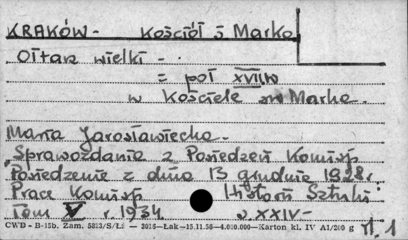 KRAKÓW - Kościół ś Marka
Ołtarz wielki -
= poł XVII w
w Kościele św Marka.
Maria Jarosławiecka -
„Sprawozdania z Posiedzeń Komisji
Posiedzenie z dnia 13 grudnia 1928 r.
Prace Komisji Historii Sztuki
Tom V r. 1934 XXIV -
CWD - B-15b. Zam. 5823/S/Ł - 3016-Łak-15.11.56-4.000.000-Karton kl. IV A1/200 g